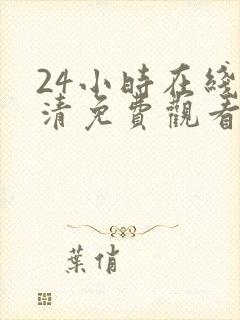 24小時在綫
清免費觀看
葉俏